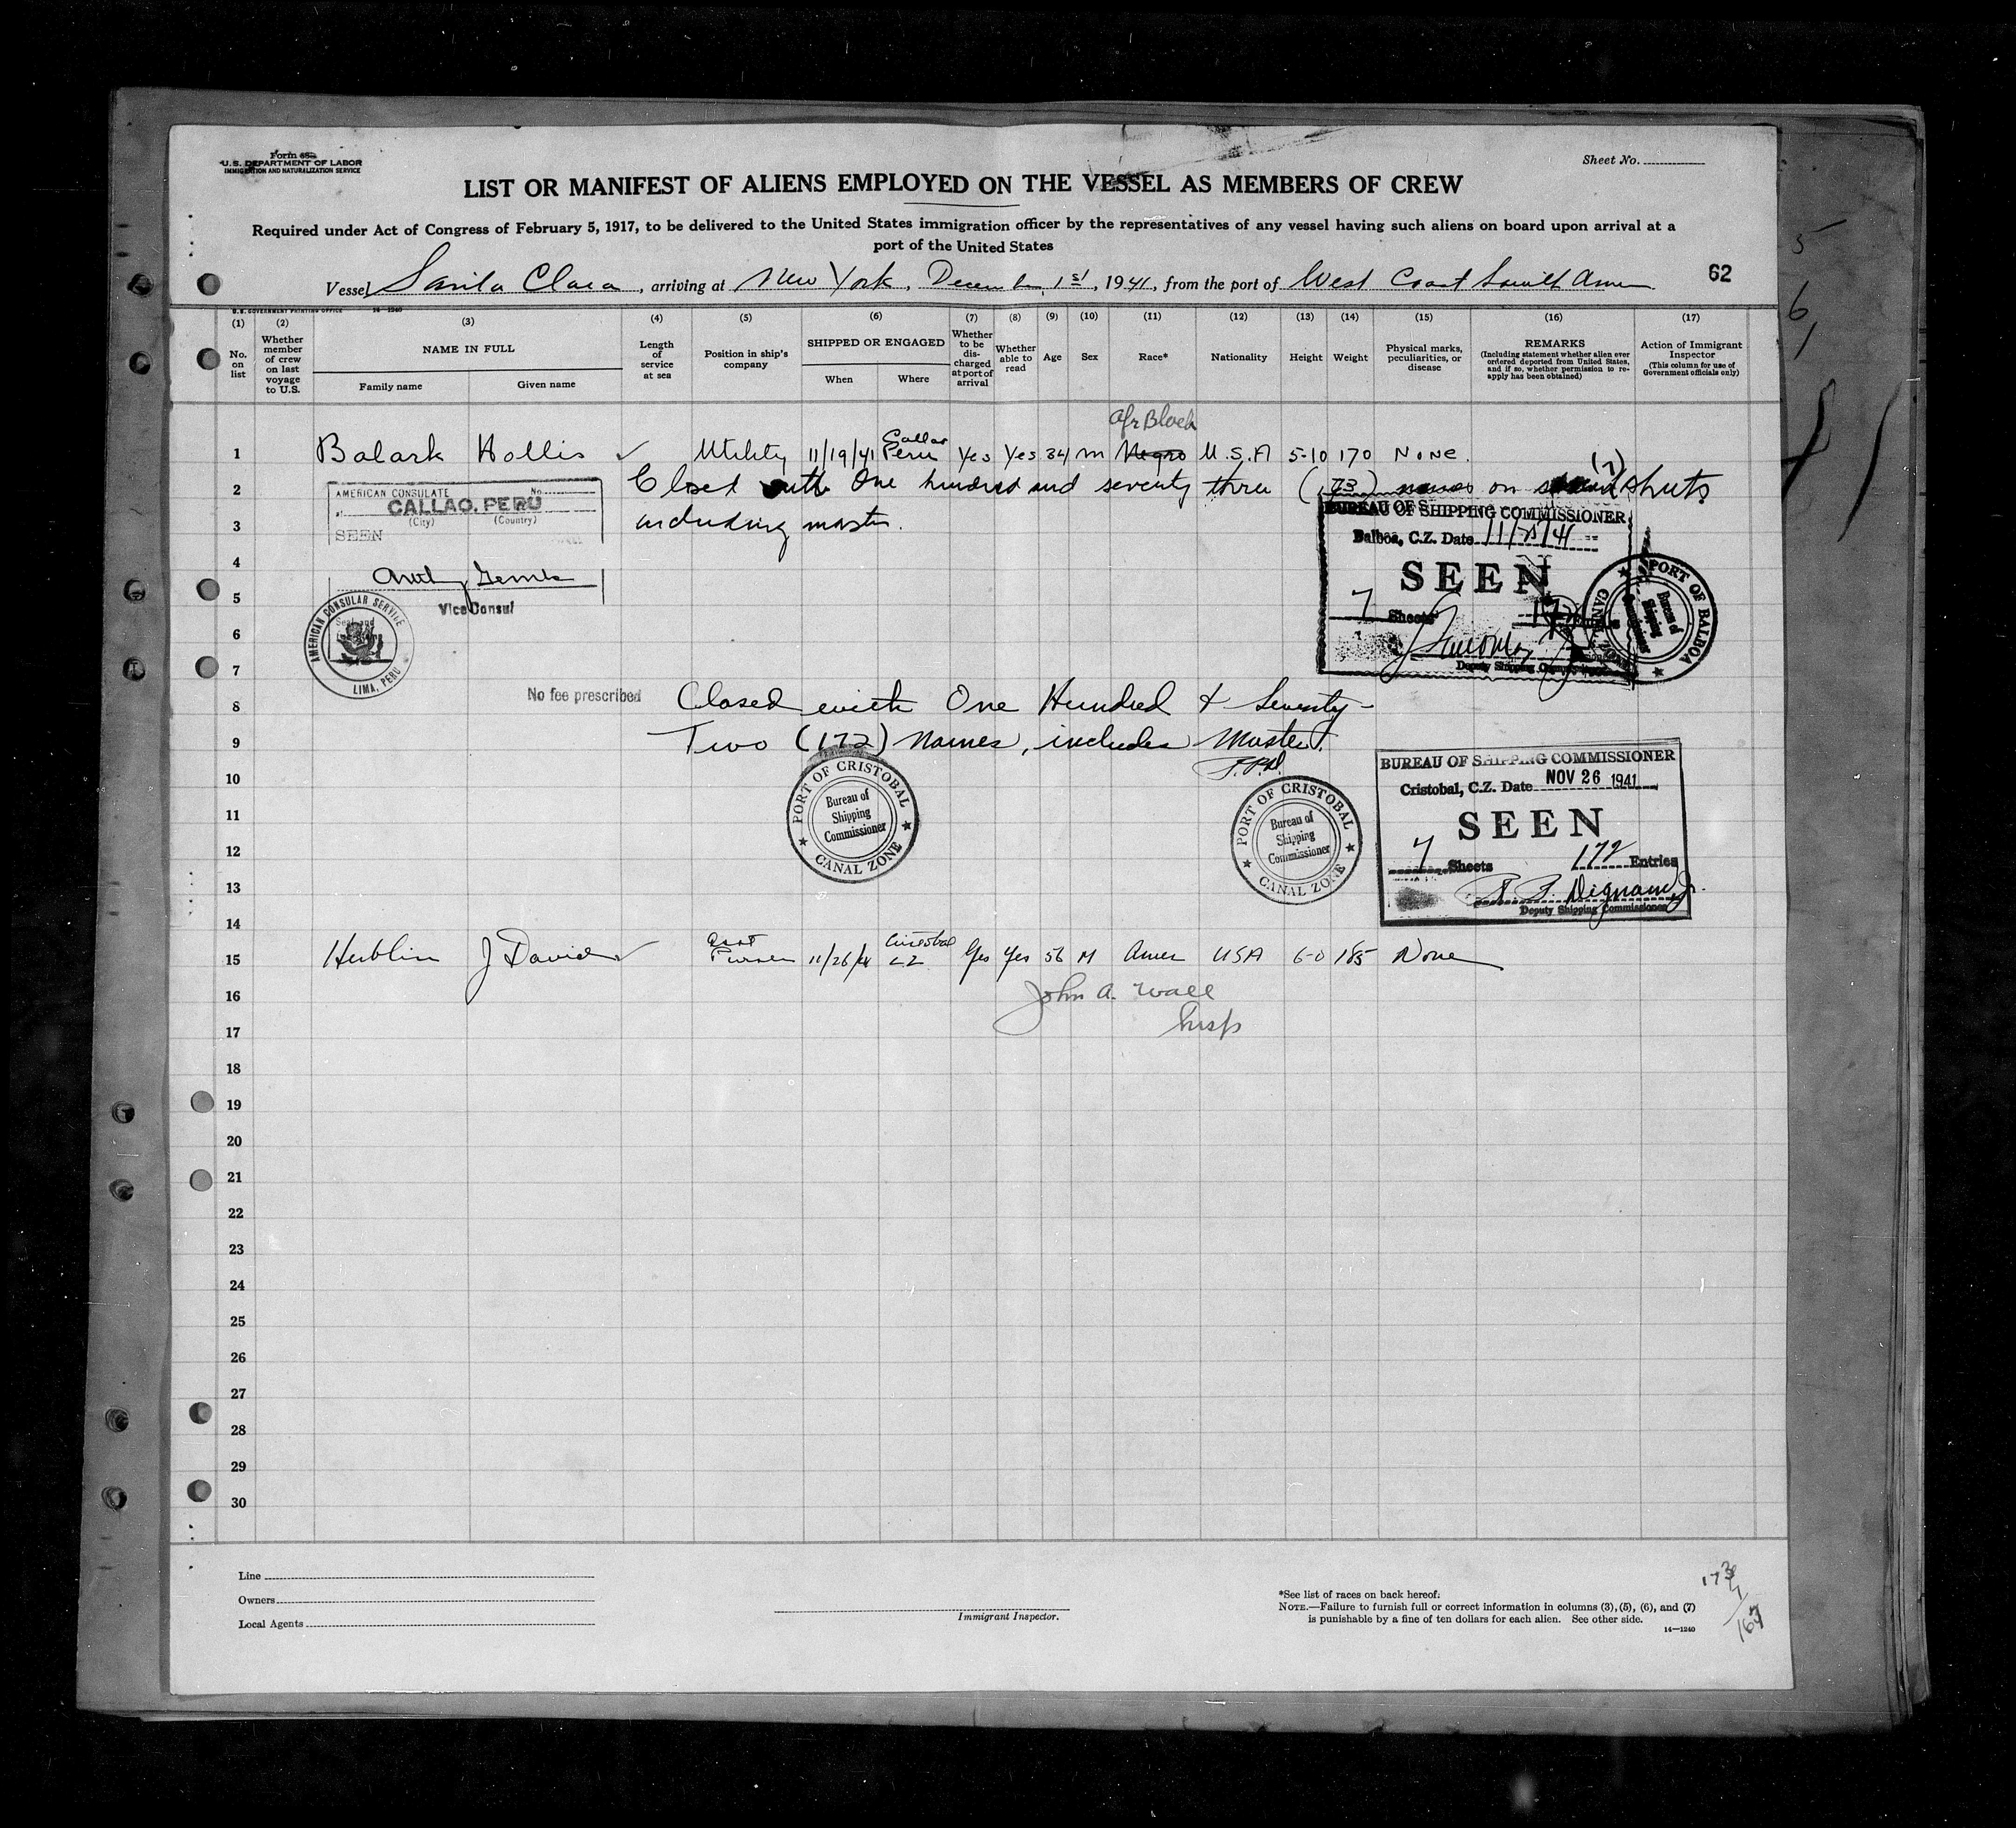 Form 689
U.S. DEPARTMENT OF LABOR
IMMIGRATION AND NATURALIZATION SERVICE
Sheet No.
LIST OR MANIFEST OF ALIENS EMPLOYED ON THE VESSEL AS MEMBERS OF CREW
Required under Act of Congress of February 5, 1917, to be delivered to the United States immigration officer by the representatives of any vessel having such aliens on board upon arrival at a
port of the United States
Vessel Santa Clara, arriving at New York, December 1st, 1941, from the port of West Coast South Amer
62
U.S. GOVERNMENT PRINTING OFFICE 14—1240
(1) No. on list
(2) Whether member of crew on last voyage to U.S.
(3) NAME IN FULL Family name Given name
(4) Length of service at sea
(5) Position in ship's company
(6) SHIPPED OR ENGAGED When Where
(7) Whether to be discharged at port of arrival
(8) Whether able to read
(9) Age
(10) Sex
(11) Race*
(12) Nationality
(13) Height
(14) Weight
(15) Physical marks, peculiarities, or disease
(16) REMARKS (Including statement whether alien ever ordered deported from United States, and if so, whether permission to reapply has been obtained)
(17) Action of Immigrant Inspector (This column for use of Government officials only)
Afr Black
1 Balark Hollis ✓ Utility 11/19/41 Callao Peru Yes Yes 34 m Negro U.S.A 5-10 170 None.
2 Closed with One hundred and seventy three (173) names on (7) sheets
3 including master.
AMERICAN CONSULATE No.
at CALLAO, PERU
(City) (Country)
SEEN
Vice Consul
AMERICAN CONSULAR SERVICE LIMA, PERU
No fee prescribed
BUREAU OF SHIPPING COMMISSIONER
Balboa, C.Z. Date 11/25/41
SEEN
7 Sheets
Deputy Shipping Commissioner
PORT OF BALBOA CANAL ZONE
Bureau of Shipping Commissioner
4
5
6
7
8 Closed with One Hundred & Seventy-
9 Two (172) names, includes Master.
10
11
12
13
14
PORT OF CRISTOBAL CANAL ZONE
Bureau of Shipping Commissioner
PORT OF CRISTOBAL CANAL ZONE
Bureau of Shipping Commissioner
BUREAU OF SHIPPING COMMISSIONER
Cristobal, C.Z. Date NOV 26 1941
SEEN
7 Sheets 172 Entries
Dignam Jr.
Deputy Shipping Commissioner
15 Hublin J David ✓ Asst Purser 11/26/41 Cristobal CZ Yes Yes 56 M Amer USA 6-0 185 None
16 John A. Wall
17 Insp
18
19
20
21
22
23
24
25
26
27
28
29
30
Line
Owners
Local Agents
Immigrant Inspector.
*See list of races on back hereof.
NOTE.—Failure to furnish full or correct information in columns (3), (5), (6), and (7)
is punishable by a fine of ten dollars for each alien. See other side.
14—1240